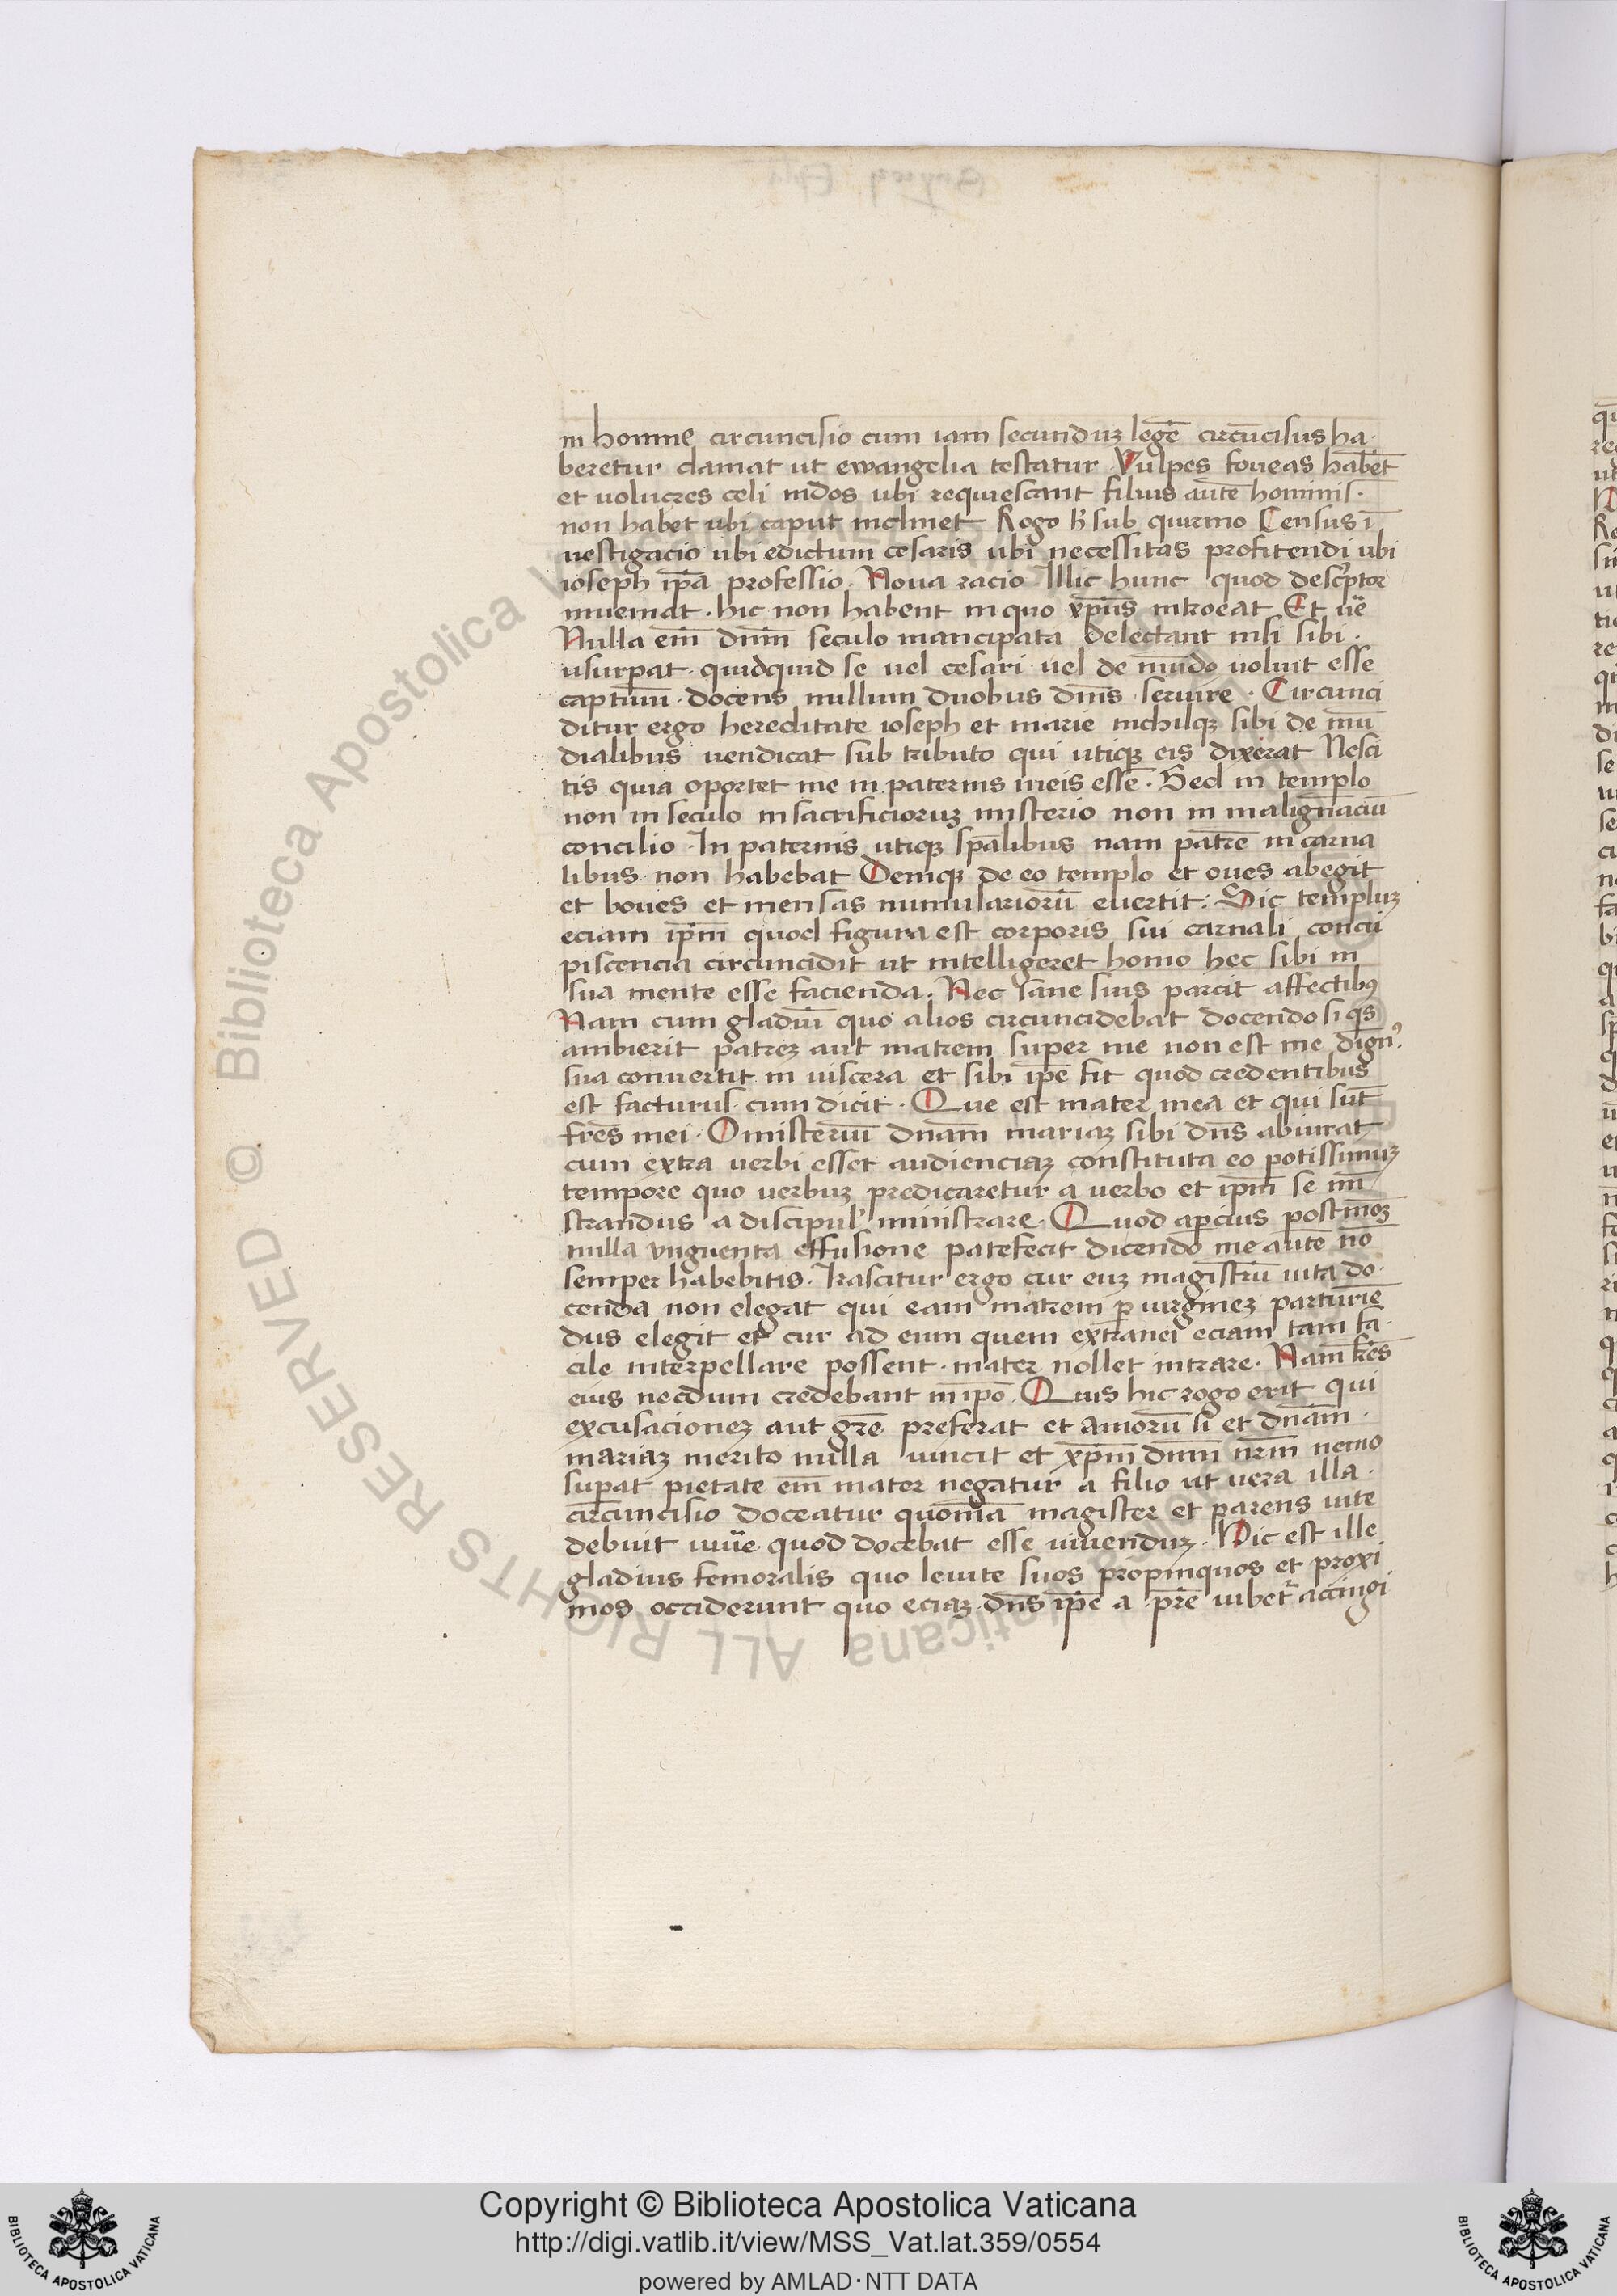 in homine circuncisio cum iam secunduz legē circūcisus ha-
beretur clamat ut ewangelia testatur Vulpes foueas habēt
et volucres celi nidos ubi requiescant filius autē hominis·
non habet ubi caput inclinet Rogo h̄ sub quirino Census ī
uestigacio ubi edictum cesaris ubi necessitas profitendi ubi
ioseph ip̄a professio. Noua racio Illic hunc quod descͥptor
inueniat· hic non habent in quo xp̄us introeat Et
Nulla em̄ dnm̄ seculo mancipata delectant nisi sibi·
usurpat· quidquid se uel cesari uel de mūdo voluit esse
captiuū· docens nullum duobus dn̄is seruire· Circunci
ditur ergo hereditate ioseph et marie nichilqꝫ sibi de mū
dialibus uendicat sub tributo qui utiqꝫ eis dixerat Nesci
tis quia oportet me in paternis meis esse· Sed in templo
non in seculo in sacrificioruz misterio non in malignāciū
concilio· In paternis utiqꝫ sp̄alibus nam patrē in carna
libus· non habebat Deniqꝫ de eo templo et oues abegit
et boues et mensas numulariorū euertit: Sic templuz
eciam ip̄m quod figura est corporis sui carnali concu
piscencia circuncidit ut intelligeret homo hec sibi in
sua mente esse facienda. Nec sane suis parcit affectibꝰ
Nam cum gladiū quo alios circuncidebat docendo si qͥs
ambierit patrez aut matrem super me non est me dign̄ꝰ
sua conuertit in uiscera et sibi ip̄e fit quod credentibus
est facturus· cum dicit· Que est mater mea et qui sūt
frēs mei· O misteriū dnām mariaz sibi dn̄s abiurat
cum extra uerbi esset audienciaz constituta eo potissimuz
tempore quo uerbuz predicaretur a verbo et ip̄m se mī
strandus a discipul' ministrare· Quod aꝑcius postmoꝫ
nulla vnguenta effusione patefecit dicendo me autē nō
semper habebitis· Irascitur ergo cur euz magistrū uita do·
cenda non elegat qui eam matrem ꝑ uirginez parturiē
dus elegit et cur ad eum quem extranei eciam tam fa·
cile interpellare possent· mater nollet intrare· Nam frēs
eius necdum credebant in ip̄o Quis hic rogo erit qui
excusacionez aut grē preferat et amorū si et dnām·
mariaz merito nulla uincit et xp̄m dnm̄ nrm̄ nemo
suꝑat pietate em̄ mater negatur a filio ut uera illa·
circūncisio doceatur quoniā magister et parens uite
debuit quod docebat esse uiuenduz· Hic est ille
gladius femoralis quo leuite suos propinquos et proxi
mos occiderunt quo eciaz dn̄s ip̄e a pr̄e iubetͬ accingi
Copyright © Biblioteca Apostolica Vaticana
http://digi.vatlib.it/view/MSS_Vat.lat.359/0554
powered by AMLAD·NTT DATA
BIBLIOTECA APOSTOLICA VATICANA
BIBLIOTECA APOSTOLICA VATICANA